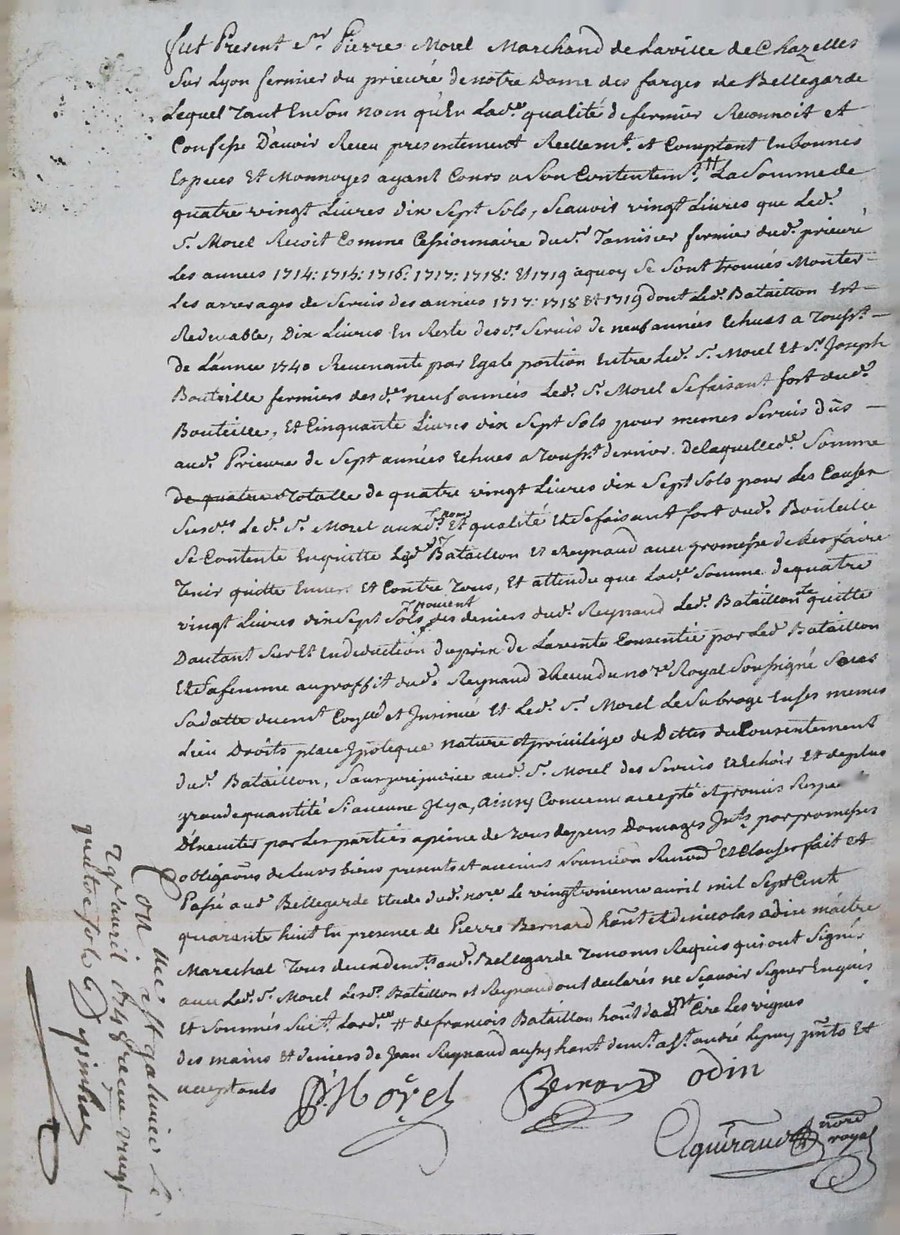 fut Present Sr. Pierre Morel Marchand de Laville de Chazelles
Sur Lyon fermier du prieuré de notre Dame des farges de Bellegarde
Lequel Tant En Son nom qu'En Lade. qualité de fermier Reconnoit et
Confesse D'avoir Receu presentement Reellemt. et Comptent En bonnes
Especes Et Monnoyes ayant Cours a Son Contentemt. # La Somme de
quatre vingt Livres dix Sept Sols, Scavoir vingt Livres que Led.
Sr. Morel Recoit Comme Cessionnaire du Sr. Tamisier fermier dud. prieuré
Les années 1714: 1715: 1716: 1717: 1718: Et 1719 aquoy Se Sont trouvés Monter
Les arrerages de Servis des années 1717: 1718 et 1719 dont Led. Bataillon Est
Redevable, Dix Livres En Reste desd. Servis de neuf années Echues a Toussts.
de L'année 1740 Revenante par Egale portion Entre Led. Sr. Morel Et Sr. Joseph
Bouteille fermiers desdes. neuf années Led. Sr. Morel Se faisant fort dud.
Bouteille, Et Cinquante Livres dix Sept Sols pour memes Servis dûs
aud. Prieuré de Sept années Echues a Toussts. dernier. de laquellede. Somme
de quatre Totalle de quatre vingt Livres dix Sept Sols pour Les Causes
Susdes. Led. Sr. Morel auxd. nom Et qualité Et Se faisant fort dud. Bouteille
Se Contente En quitte Led. Bataillon Et Reynaud avec promesse de Les faire
Tenir quitte Envers Et Contre Tous, Et attendu que Lade. Somme de quatre
vingt Livres dix Sept Sols Provient des deniers dud. Reynaud Led. Bataillon Le quitte
Dautant Sur Et En deduction du prix de La vente Consentie par Led. Bataillon
Et Sa femme au proffit dud. Reynaud Receu du nore. Royal Soussigné Sous
Sa datte duemt. Et Insinué Et Led. Sr. Morel Le Subroge En Ses memes
Lieu Droits place Ipoteque nature Et privilege de Dittes du Consentement
dud. Bataillon, Sans prejudice aud. Sr. Morel des Servis a Echoir Et de plus
grande quantité Si aucune Il y a, ainsy Convenu accepté Et promis
D'Executer par Les parties a peine de Tous depens Domages Intts. par promesses
obligaõns de Leurs biens presents et avenirs Soumiõn Renond. Et Clauses fait Et
Passé aud. Bellegarde Etude dud. nore. Le vingt avril mil Sept Cent
quarante huit En presence de Pierre Bernard hant. Et de nicolas odin maitre
Marechal Tous deux aud. Bellegarde Temoins Requis qui ont Signé
avec Led. Sr. Morel Lesd. Bataillon et Reynaud ont declarés ne Scavoir Signer Enquis
Et Sommés Suivt. Lorde. # de françois Bataillon hant. de St Cire Les vignes
des mains Et deniers de Jean Reynaud aussy hant. a St. andré Le puy pnts Et
acceptants
P. Morel Bernard odin
Guiraud nore royal
Con. a St galmier Le
avril 1748 Reçu vingt
quatre sols